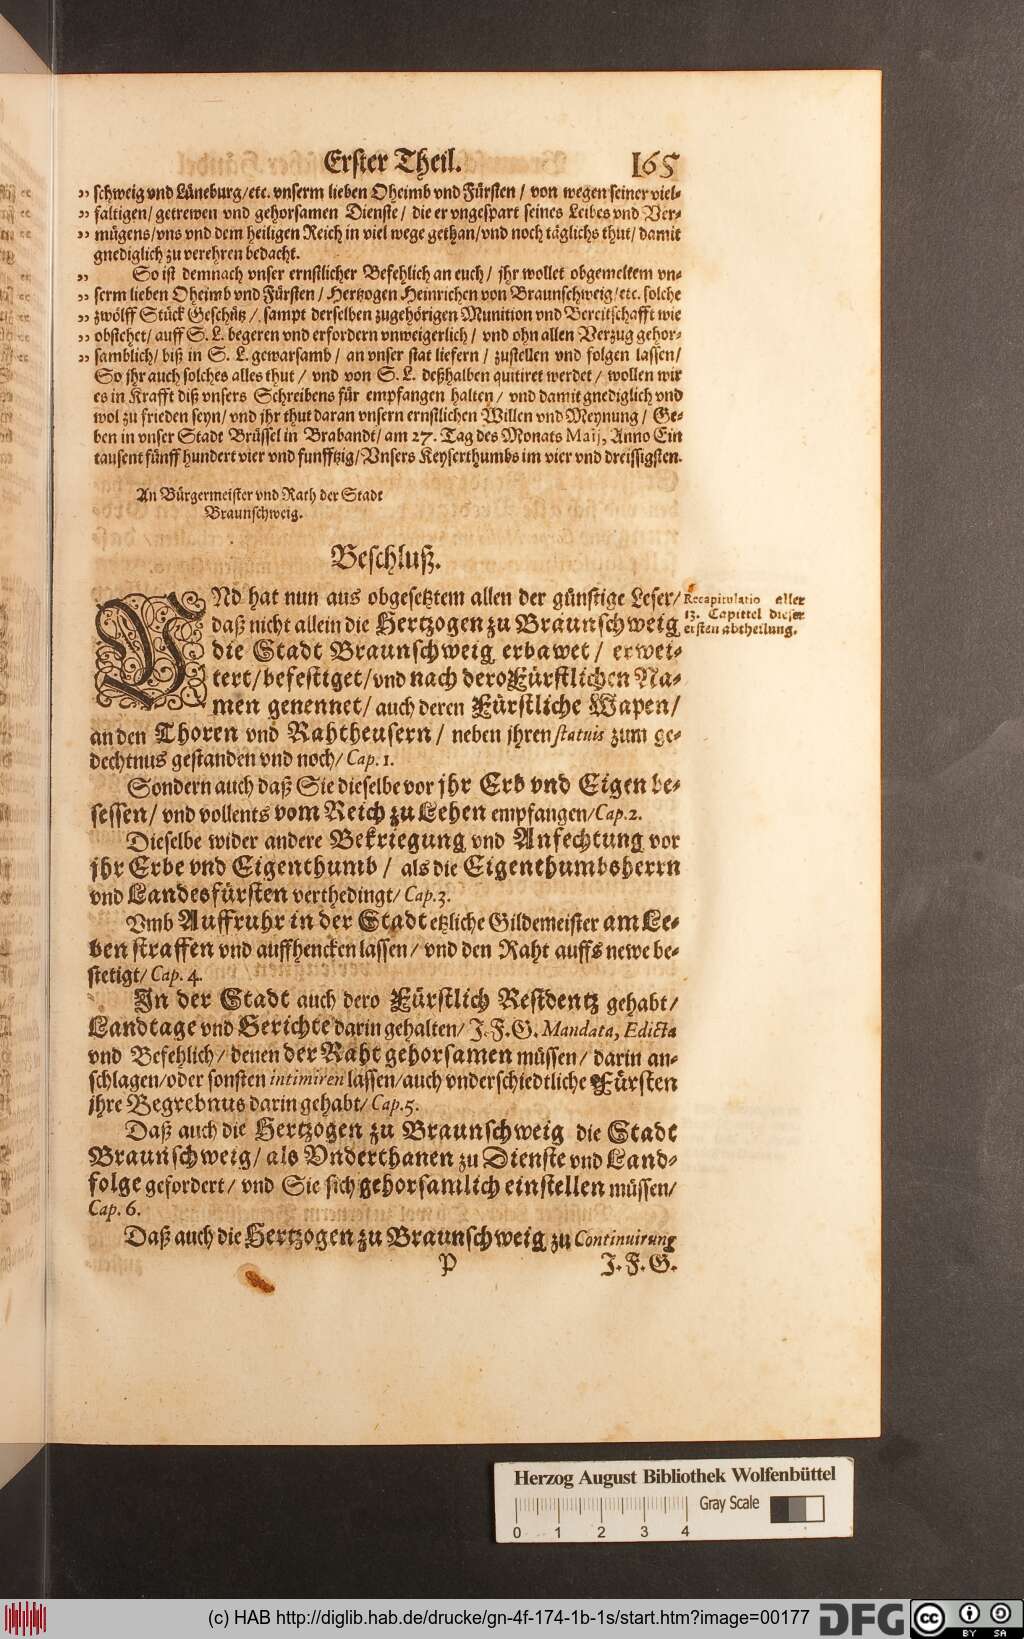 Erster Theil. 165
„ schweig vnd Lüneburg/etc. vnserm lieben Oheimb vnd Fürsten / von wegen seiner viel-
„ faltigen/ getrewen vnd gehorsamen Dienste/ die er vngespart seines Leibes vnd Ver-
„ mügens/vns vnd dem heiligen Reich in viel wege gethan/vnd noch täglichs thut/ damit
gnediglich zu verehren bedacht.
„ So ist demnach vnser ernstlicher Befehlich an euch/ jhr wollet obgemeltem vn-
„ serm lieben Oheimb vnd Fürsten / Hertzogen Heinrichen von Braunschweig/etc. solche
„ zwölff Stück Geschütz / sampt derselben zugehörigen Munition vnd Bereitschafft wie
„ obstehet/ auff S. L. begeren vnd erfordern vnweigerlich / vnd ohn allen Verzug gehor-
„ samblich/ biß in S. L. gewarsamb / an vnser stat liefern / zustellen vnd folgen lassen/
So jhr auch solches alles thut / vnd von S. L. deßhalben quitiret werdet / wollen wir
es in Krafft diß vnsers Schreibens für empfangen halten / vnd damit gnediglich vnd
wol zu frieden seyn/ vnd jhr thut daran vnsern ernstlichen Willen vnd Meynung / Ge-
ben in vnser Stadt Brüssel in Brabandt/ am 27. Tag des Monats Maij, Anno Ein
tausent fünff hundert vier vnd funfftzig/ Vnsers Keyserthumbs im vier vnd dreissigsten.
An Bürgermeister vnd Rath der Stadt
Braunschweig.
Beschluß.
VNd hat nun aus obgesetztem allen der günstige Leser/
daß nicht allein die Hertzogen zu Braunschweig
die Stadt Braunschweig erbawet / erwei-
tert/ befestiget/ vnd nach dero Fürstlichen Na-
men genennet/ auch deren Fürstliche Wapen/
an den Thoren vnd Rahtheusern / neben jhren statuis zum ge-
dechtnus gestanden vnd noch/ Cap. 1.
Recapitulatio aller
13. Capittel dieser
ersten abtheilung.
Sondern auch daß Sie dieselbe vor jhr Erb vnd Eigen be-
sessen/ vnd vollents vom Reich zu Lehen empfangen/Cap.2.
Dieselbe wider andere Bekriegung vnd Anfechtung vor
jhr Erbe vnd Eigenthumb / als die Eigenthumbsherrn
vnd Landesfürsten verthedingt/ Cap.3.
Vmb Auffruhr in der Stadt etzliche Gildemeister am Le-
ben straffen vnd auffhencken lassen/ vnd den Raht auffs newe be-
stetigt/ Cap. 4.
In der Stadt auch dero Fürstlich Residentz gehabt/
Landtage vnd Gerichte darin gehalten/ J. F. G. Mandata, Edicta
vnd Befehlich/ denen der Raht gehorsamen müssen/ darin an-
schlagen/oder sonsten intimiren lassen/auch vnderschiedtliche Fürsten
jhre Begrebnus darin gehabt/ Cap.5.
Daß auch die Hertzogen zu Braunschweig die Stadt
Braunschweig/ als Vnderthanen zu Dienste vnd Land-
folge gefordert/ vnd Sie sich gehorsamlich einstellen müssen/
Cap. 6.
Daß auch die Hertzogen zu Braunschweig zu Continuirung
P J. F. G.
Herzog August Bibliothek Wolfenbüttel
Gray Scale
0 1 2 3 4
(c) HAB http://diglib.hab.de/drucke/gn-4f-174-1b-1s/start.htm?image=00177 DFG cc BY SA